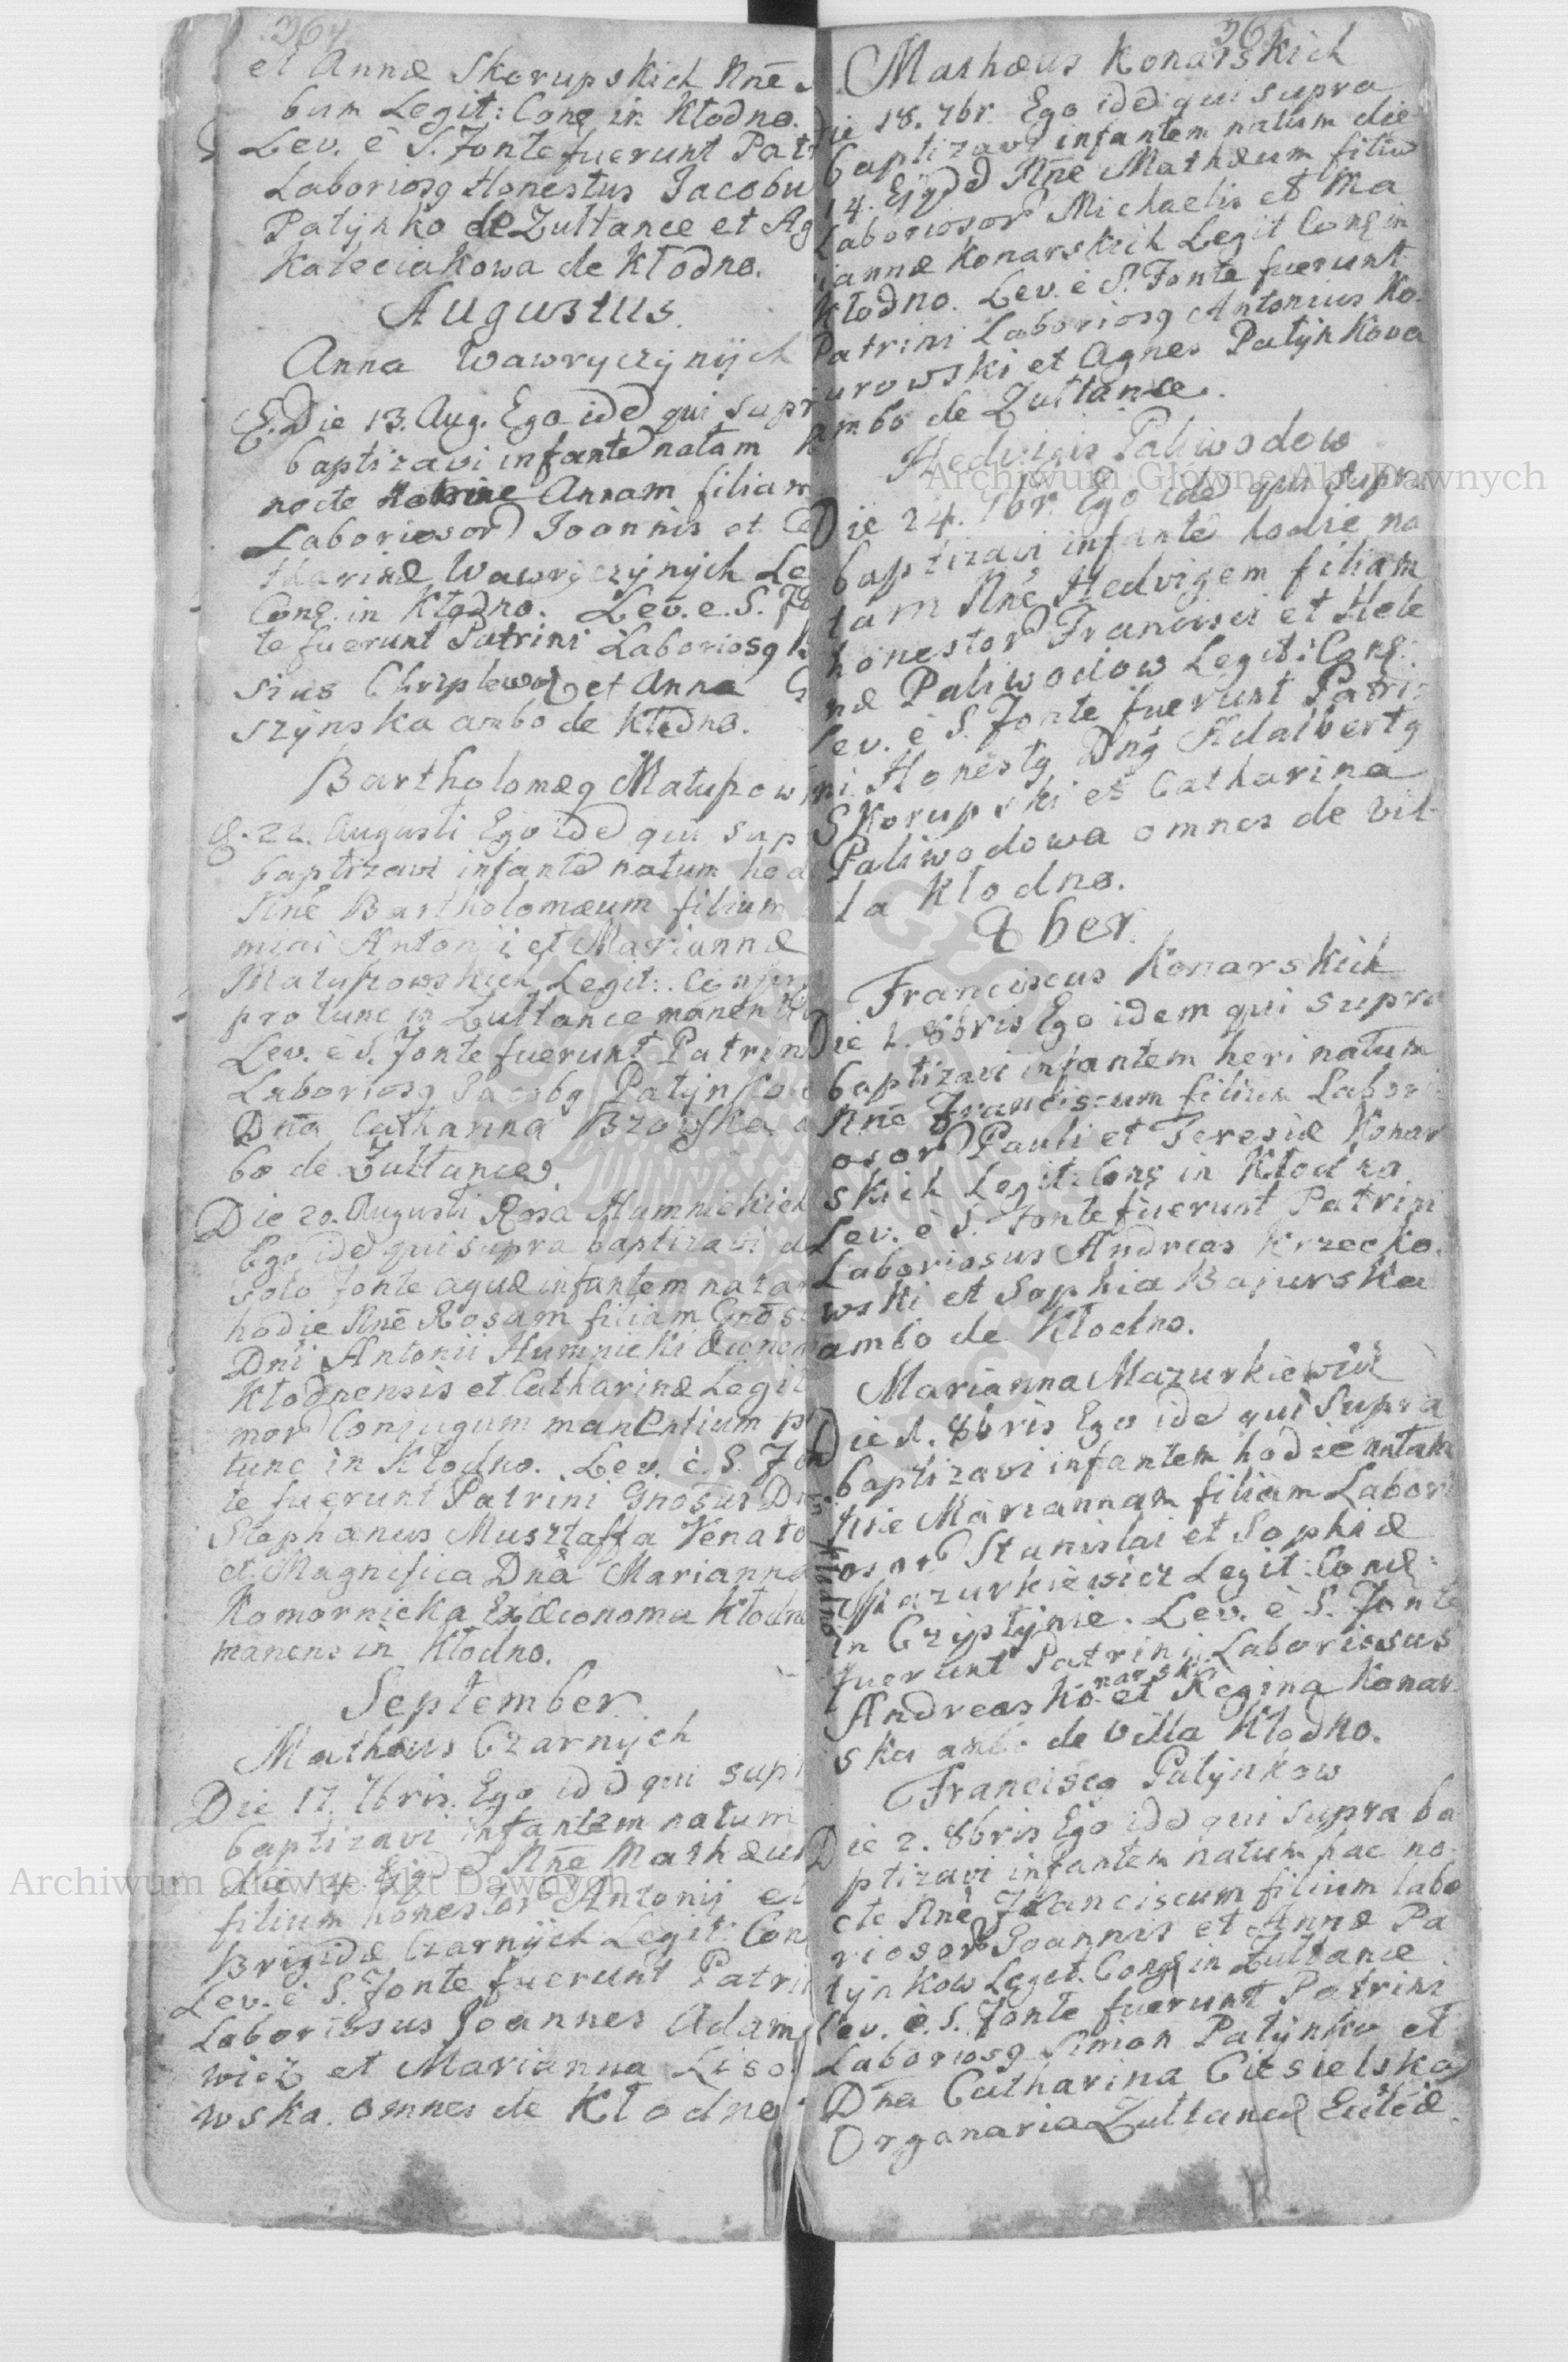 364
et Annæ Skorupskich Nnē
bum Legit: Conę in Kłodno.
Lev. è S. Fonte fuerunt Patr
Laboriosq Honestus Jacobu
Patynko de Zułtance et Ag
Kaleciakowa de Kłodno.
Augustus.
Anna Wawryczynÿch
Die 13. Aug. Ego idē qui supr
baptizavi infantē natam
nocte Annam filiam
Laboriosor Joannis et Ca
tharinæ Wawryczynych Le
Conę. in Kłodno. Lev. e. S. Fo
te fuerunt Patrini Laboriosq
sius et Anna G
szynska ambo de Kłodno.
Bartholomæq Matuszow
22. Augusti Ego idē qui sup
baptizavi infantē natum hod
Nnē Bartholomæum filium
mini Antonij et Mariannæ
Matuszowskich Legit: Conju
pro tunc in Zułtance manenti
Lev. è S. Fonte fuerunt Patrini
Laboriosq Jacobq Patynko
Dna Catharina a
bo de Zułtance.
Die 20. Augusti Rosa Humnickich
Ego idē qui supra baptizavi d
solo fonte aquæ infantem natam
hodie Nnē Rosam filiam Gnōsi
Dni Antonii Humnicki Œconom
Kłodnensis et Catharinæ Legit
mor Conjugum manentium p
tunc in Kłodno. Lev. è. S. Fon
te fuerunt Patrini Gnosus D
Stephanus Musztaffa Venato
et Magnifica Dnā Marianna
Komornicka Exœconoma Kłodne
manens in Kłodno.
September
Mathæus Czarnÿch
Die 17. 7bris. Ego idē qui sup
baptizavi infantem natum
die 14 Ejqd Nnē Mathæu
filium honestor Antonij et
Brigidæ Czarnÿch Legit: Con
Lev. è S. Fonte fuerunt Patri
Laboriosus Joannes Adam
wicz et Marianna Liso
wska. omnes de Kłodno
365
Mathæus Konarskich
Die 18. 7br. Ego idē qui supra
baptizavi infantem natum die
14. Ejqd Nnē Mathæum filiū
Laboriosor Michaelis et Ma
riannæ Konarskich Legit Conę in
Kłodno. Lev. è S. Fonte fuerunt
Patrini Laboriosq Antonius Ko
urowski et Agnes Patynkowa
ambo de Zułtance.
Hedvigis Paliwodow
Die 24. 7br. Ego idē qui supra
baptizavi infantē hodie na
tam Nnē Hedvigem filiam
honestor Francisci et Hele
næ Paliwodow Legit: Conę.
Lev. è S. Fonte fuerunt Patri
ni Honestq Dnq Adalbertq
Skorupski et Catharina
Paliwodowa omnes de vil
la Kłodno.
8ber.
Franciscus Konarskich
Die 1. 8bris Ego idem qui supra
baptizavi infantem heri natum
Nnē Franciscum filium Labori
osor Pauli et Teresiæ Konar
skich Legit: Conę in Kłodno
Lev. è S. Fonte fuerunt Patrini
Laboriosus Andreas Krzecko
wski et Sophia Bajurska
ambo de Kłodno.
Marianna Mazurkiewicz
Die 1. 8bris Ego idē qui supra
baptizavi infantem hodie natam
Nnē Mariannam filiam Labori
osor Stanislai et Sophiæ
Mazurkiewicz Legit: Conę:
in Czystynie. Lev. è S. Fonte
fuerunt Patrini Laboriosus
Andreas Konarski et Regina Konar
ska ambo de Villa Kłodno.
Franciscq Patynkow
Die 2. 8bris Ego idē qui supra ba
ptizavi infantem natum hac no
cte Nnē Franciscum filium labo
riosor Joannis et Annæ Pa
tynkow Legit. Conę in Zułtance
Lev. è. S. Fonte fuerunt Patrini
Laboriosq Simon Patynko et
Dna Catharina Ciesielska
Organaria Zułtance
Archiwum Główne Akt Dawnych
Archiwum Główne Akt Dawnych